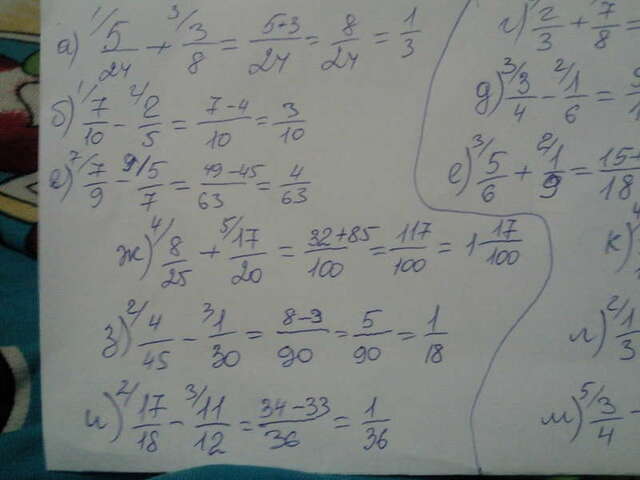 а) ¹⁾5/24 + ³⁾3/8 = 5+3/24 = 8/24 = 1/3
б) ¹⁾7/10 - ²⁾2/5 = 7-4/10 = 3/10
в) ⁷⁾7/9 - ⁹⁾5/7 = 49-45/63 = 4/63
ж) ⁴⁾8/25 + ⁵⁾17/20 = 32+85/100 = 117/100 = 1 17/100
з) ²⁾4/45 - ³⁾1/30 = 8-3/90 = 5/90 = 1/18
и) ²⁾17/18 - ³⁾11/12 = 34-33/36 = 1/36
г) 2/3 + 7/8
д) ³⁾3/4 - ²⁾1/6 =
е) ³⁾5/6 + ²⁾1/9 = 15+/18
к)
л) ²⁾1/3
м) ⁵⁾3/4 -